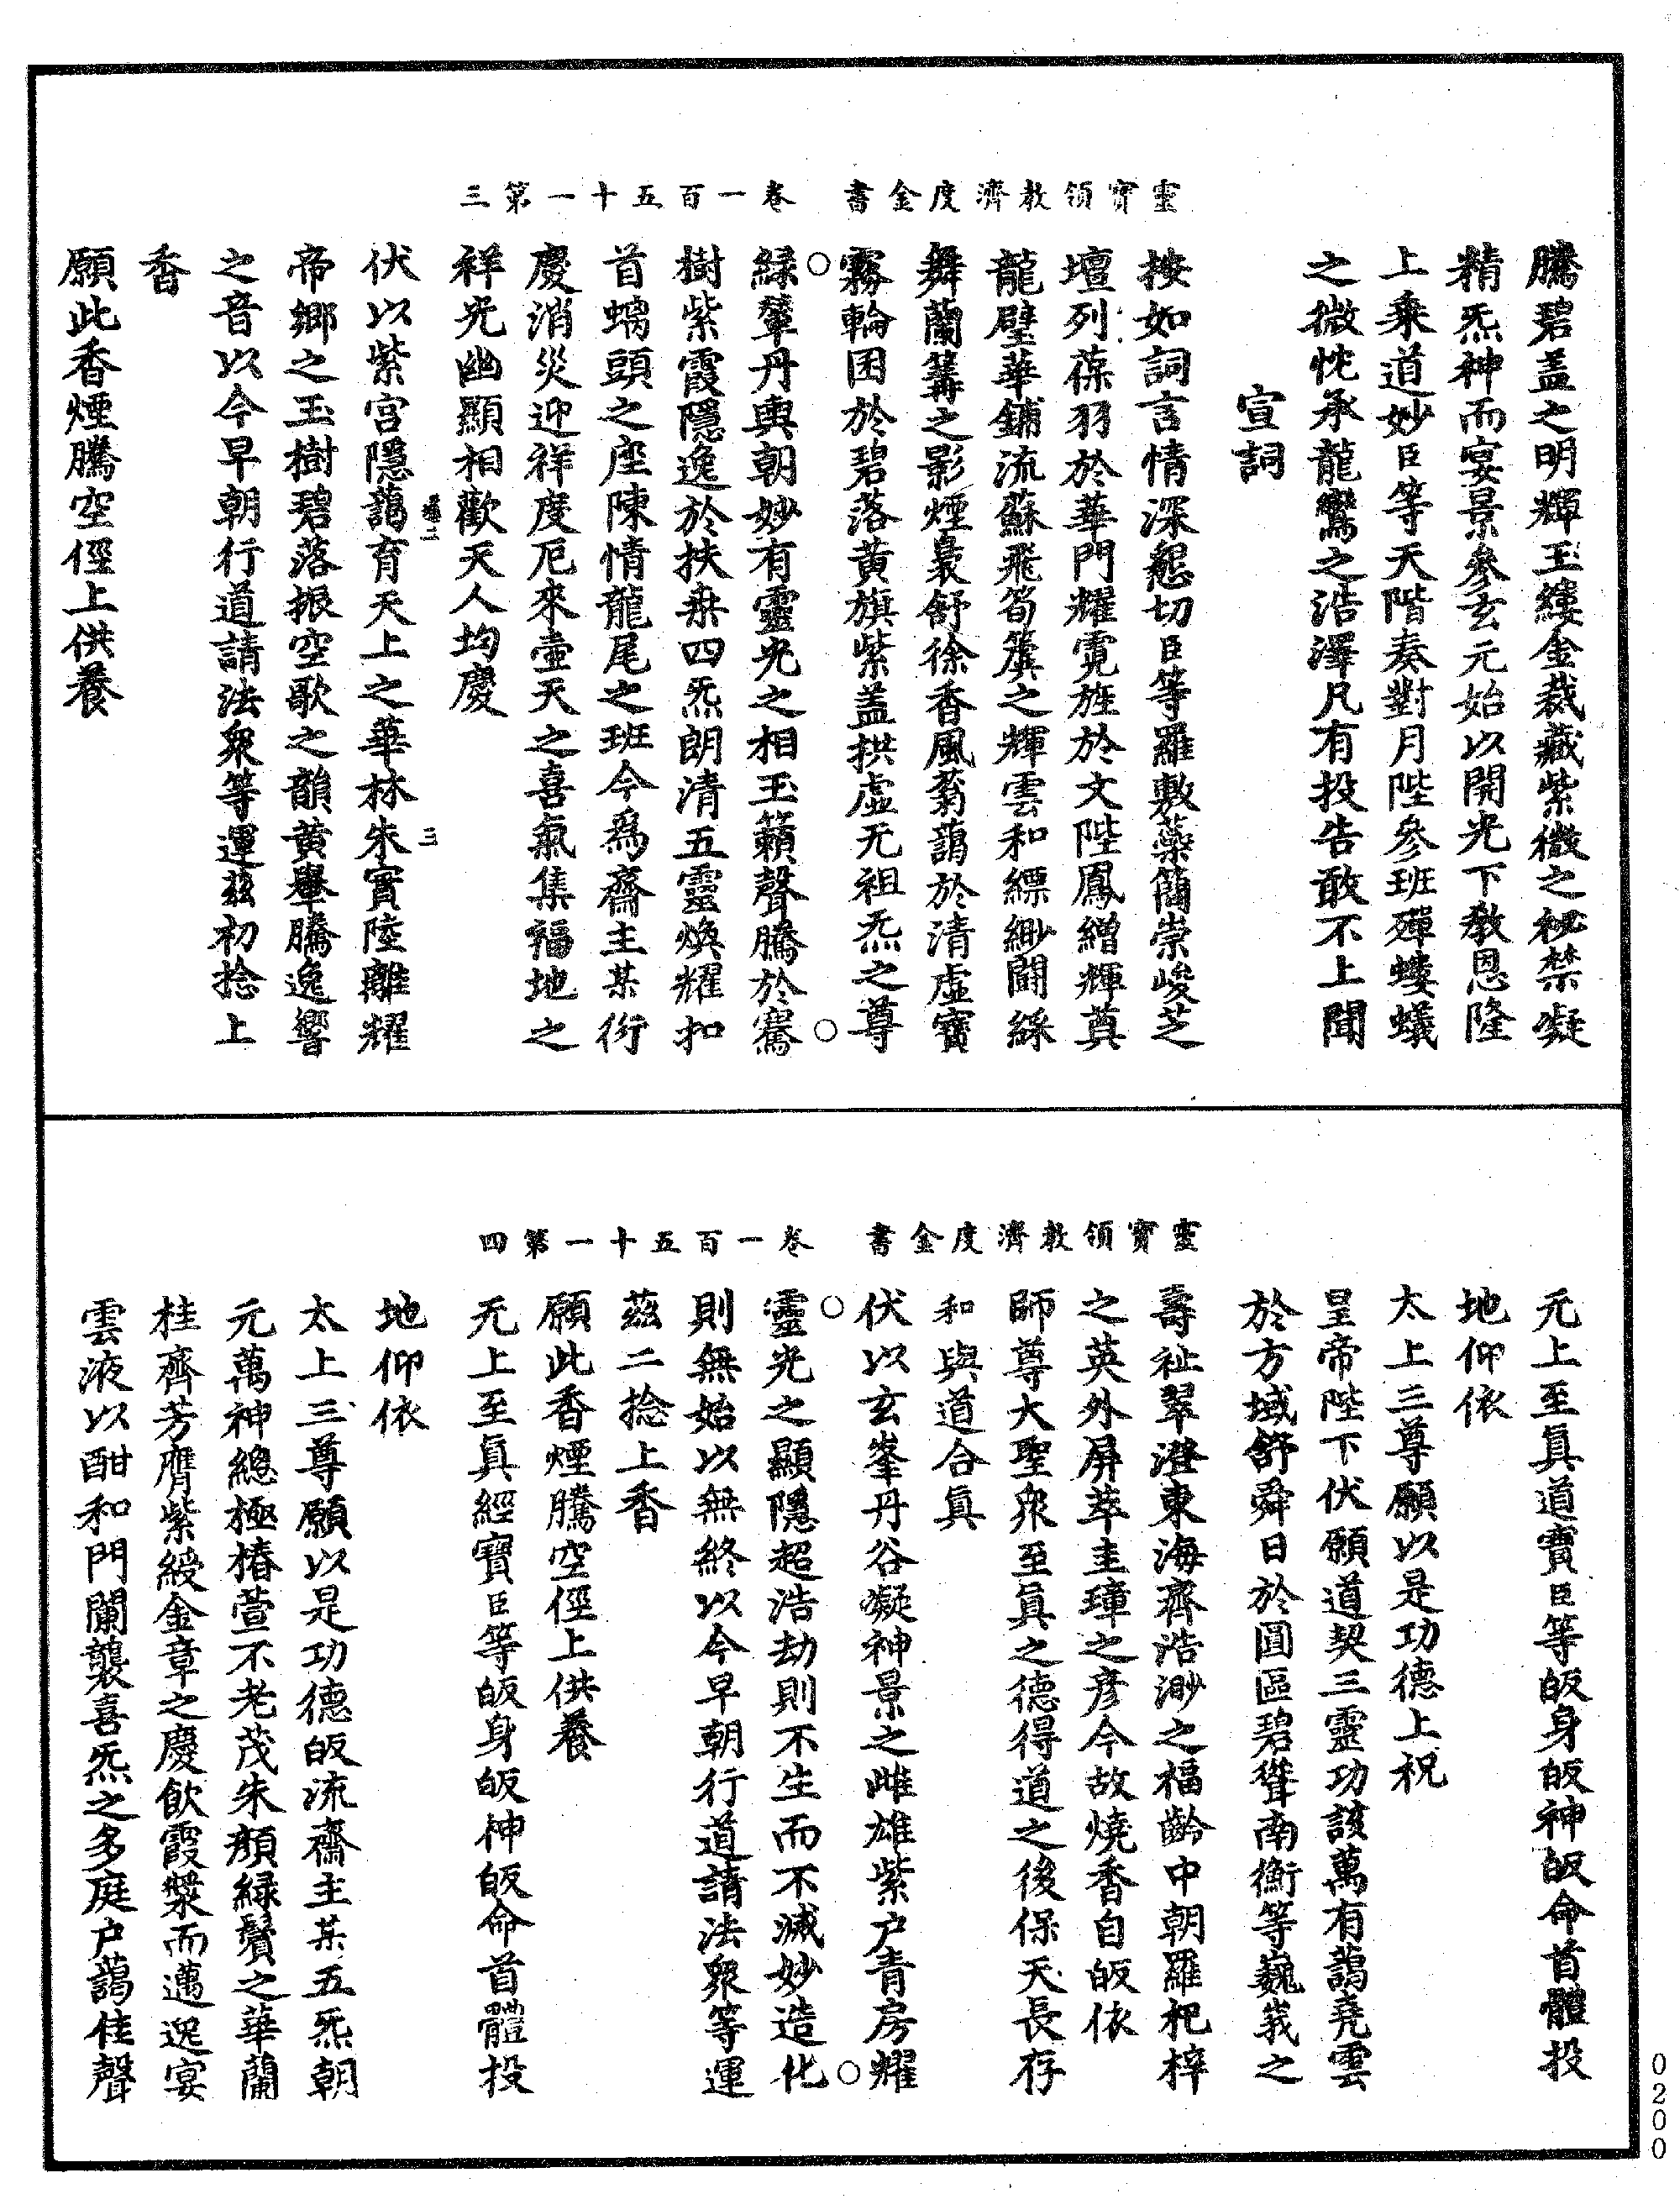 靈寶領教濟度金書　卷一百五十一第三
騰碧蓋之明輝玉縷金裁藏紫微之祕禁凝
精炁神而宴景參玄元始以開光下教恩隆
上乘道妙臣等天階奏對月陛參班殫螻蟻
之微忱承龍鸞之浩澤凡有投告敢不上聞
宣詞
按如詞言情深懇切臣等羅敷蘂簡崇峻芝
壇列葆羽於華門耀霓旌於文陛鳳繒輝奠
龍璧華鋪流蘇飛筍簴之輝雲和縹緲闘綵
舞蘭篝之影煙裊舒徐香風蓊藹於清虛寶
霧輪囷於碧落黃旗紫蓋拱虛无祖炁之尊
緑輦丹輿朝妙有靈光之相玉籟聲騰於騫
樹紫霞隱逸於扶桒四炁朗清五靈煥耀扣
首螭頭之座陳情龍尾之班今爲齋主某衍
慶消災迎祥度厄來壷天之喜氣集福地之
祥光幽顯相歡天人均慶
伏以紫宫隱藹育天上之華林朱實陸離耀
帝鄉之玉樹碧落振空歌之韻黃轝騰逸響
之音以今早朝行道請法衆等運茲初捻上
香
願此香煙騰空徑上供養
三
靈寶領教濟度金書　卷一百五十一第四
元上至眞道寶臣等皈身皈神皈命首體投
地仰依
太上三尊願以是功德上祝
皇帝陛下伏願道契三靈功該萬有藹堯雲
於方域舒舜日於圓區碧聳南衡等巍峩之
壽祉翠澄東海齊浩渺之福齡中朝羅杞梓
之英外屏萃圭璋之彦今故燒香自皈依
師尊大聖衆至眞之德得道之後保天長存
和與道合眞
伏以玄峯丹谷凝神景之雌雄紫户青房耀
靈光之顯隱超浩劫則不生而不滅妙造化
則無始以無終以今早朝行道請法衆等運
茲二捻上香
願此香煙騰空徑上供養
无上至眞經寶臣等皈身皈神皈命首體投
地仰依
太上三尊願以是功德皈流齋主某五炁朝
元萬神總極椿萱不老茂朱顔緑鬢之華蘭
桂齊芳膺紫綬金章之慶飲霞漿而邁逸宴
雲液以酣和門闌襲喜炁之多庭户藹佳聲
0200